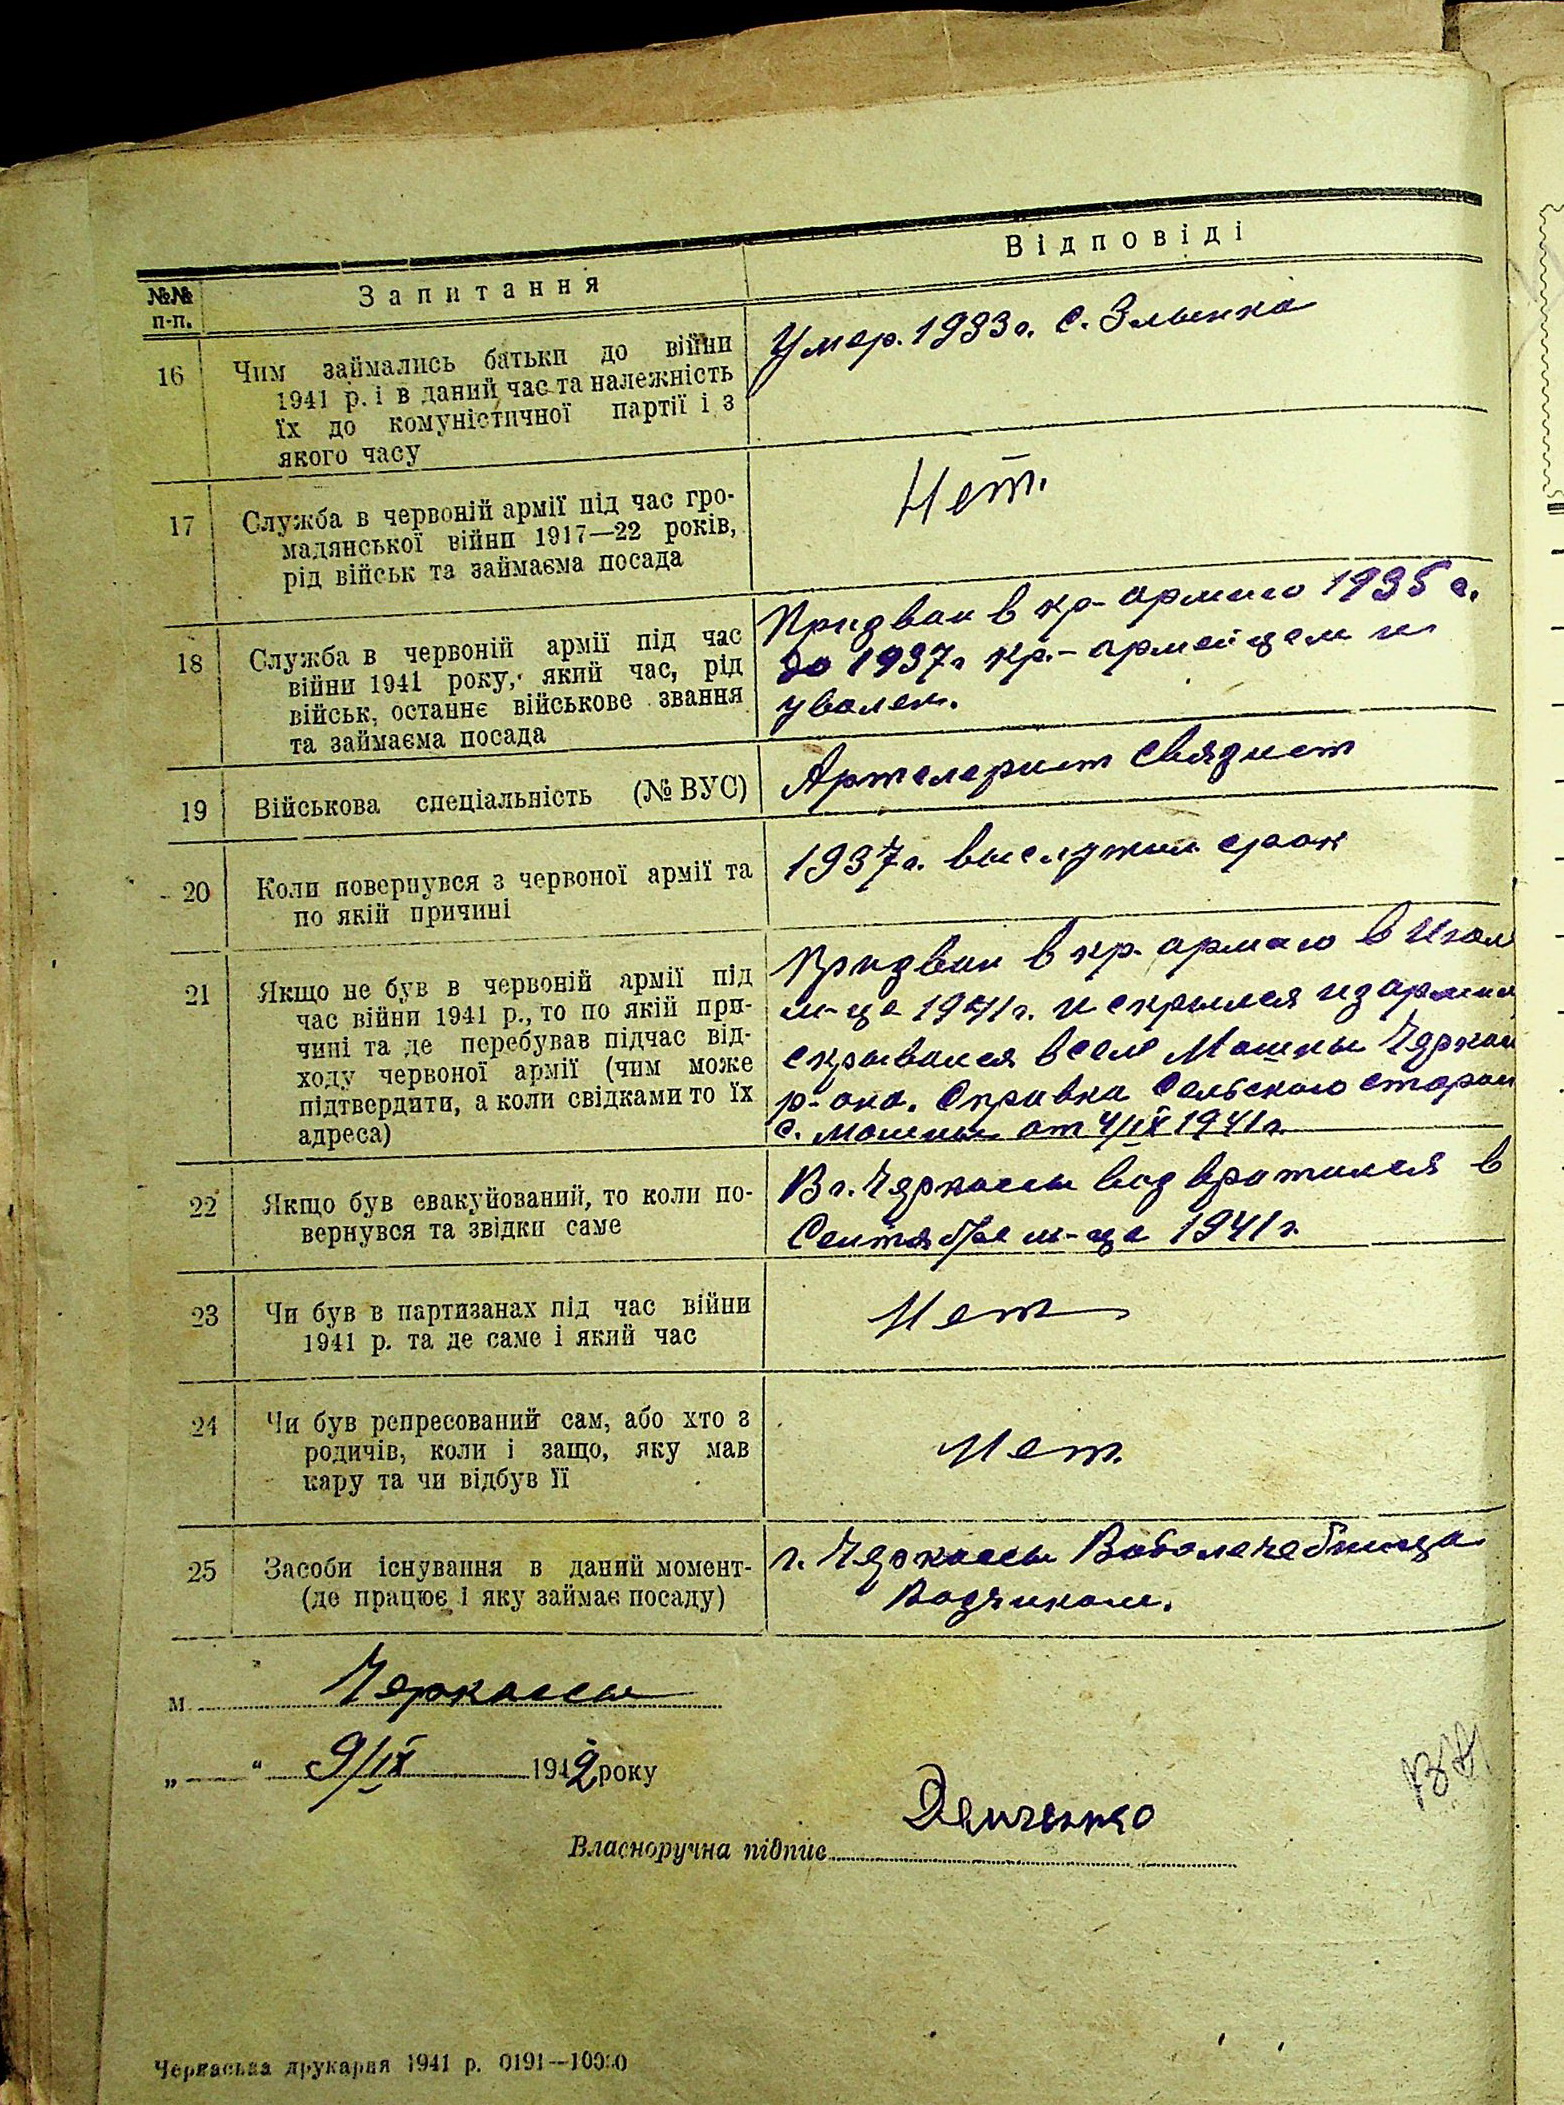 №№ п-п.
Запитання
Відповіді
16
Чим займались батьки до війни
1941 р. і в даний час та належність
їх до комуністичної партії і з
якого часу
Умер. 1933 г. с. Злынка
17
Служба в червоній армії під час гро-
мадянської війни 1917—22 років,
рід військ та займаєма посада
Нет.
18
Служба в червоній армії під час
війни 1941 року, який час, рід
військ, останнє військове звання
та займаєма посада
Призван в кр-армию 1935 г.
до 1937 г кр.-армейцем и
уволен.
19
Військова спеціальність (№ ВУС)
Артелерист связист
20
Коли повернувся з червоної армії та
по якій причині
1937 г. выслужил срок
21
Якщо не був в червоній армії під
час війни 1941 р., то по якій при-
чині та де перебував підчас від-
ходу червоної армії (чим може
підтвердити, а коли свідками то їх
адреса)
Призван в кр. армию в
м-це 1941 г. и скрылся из армии
скрывался в селе Мошны Черкас
р-она. Справка Сельского старос
с. Мошны от 4/IX 1941 г.
22
Якщо був евакуйований, то коли по-
вернувся та звідки саме
В г. Черкассы возвратился в
Сентябре м-це 1941 г.
23
Чи був в партизанах під час війни
1941 р. та де саме і який час
Нет
24
Чи був репресований сам, або хто з
родичів, коли і защо, яку мав
кару та чи відбув її
Нет.
25
Засоби існування в даний момент-
(де працює і яку займає посаду)
г. Черкассы
м. Черкассы
„ “ 9/IX 1942 року
Власноручна підпис Демченко
Черкаська друкарня 1941 р. 0191—